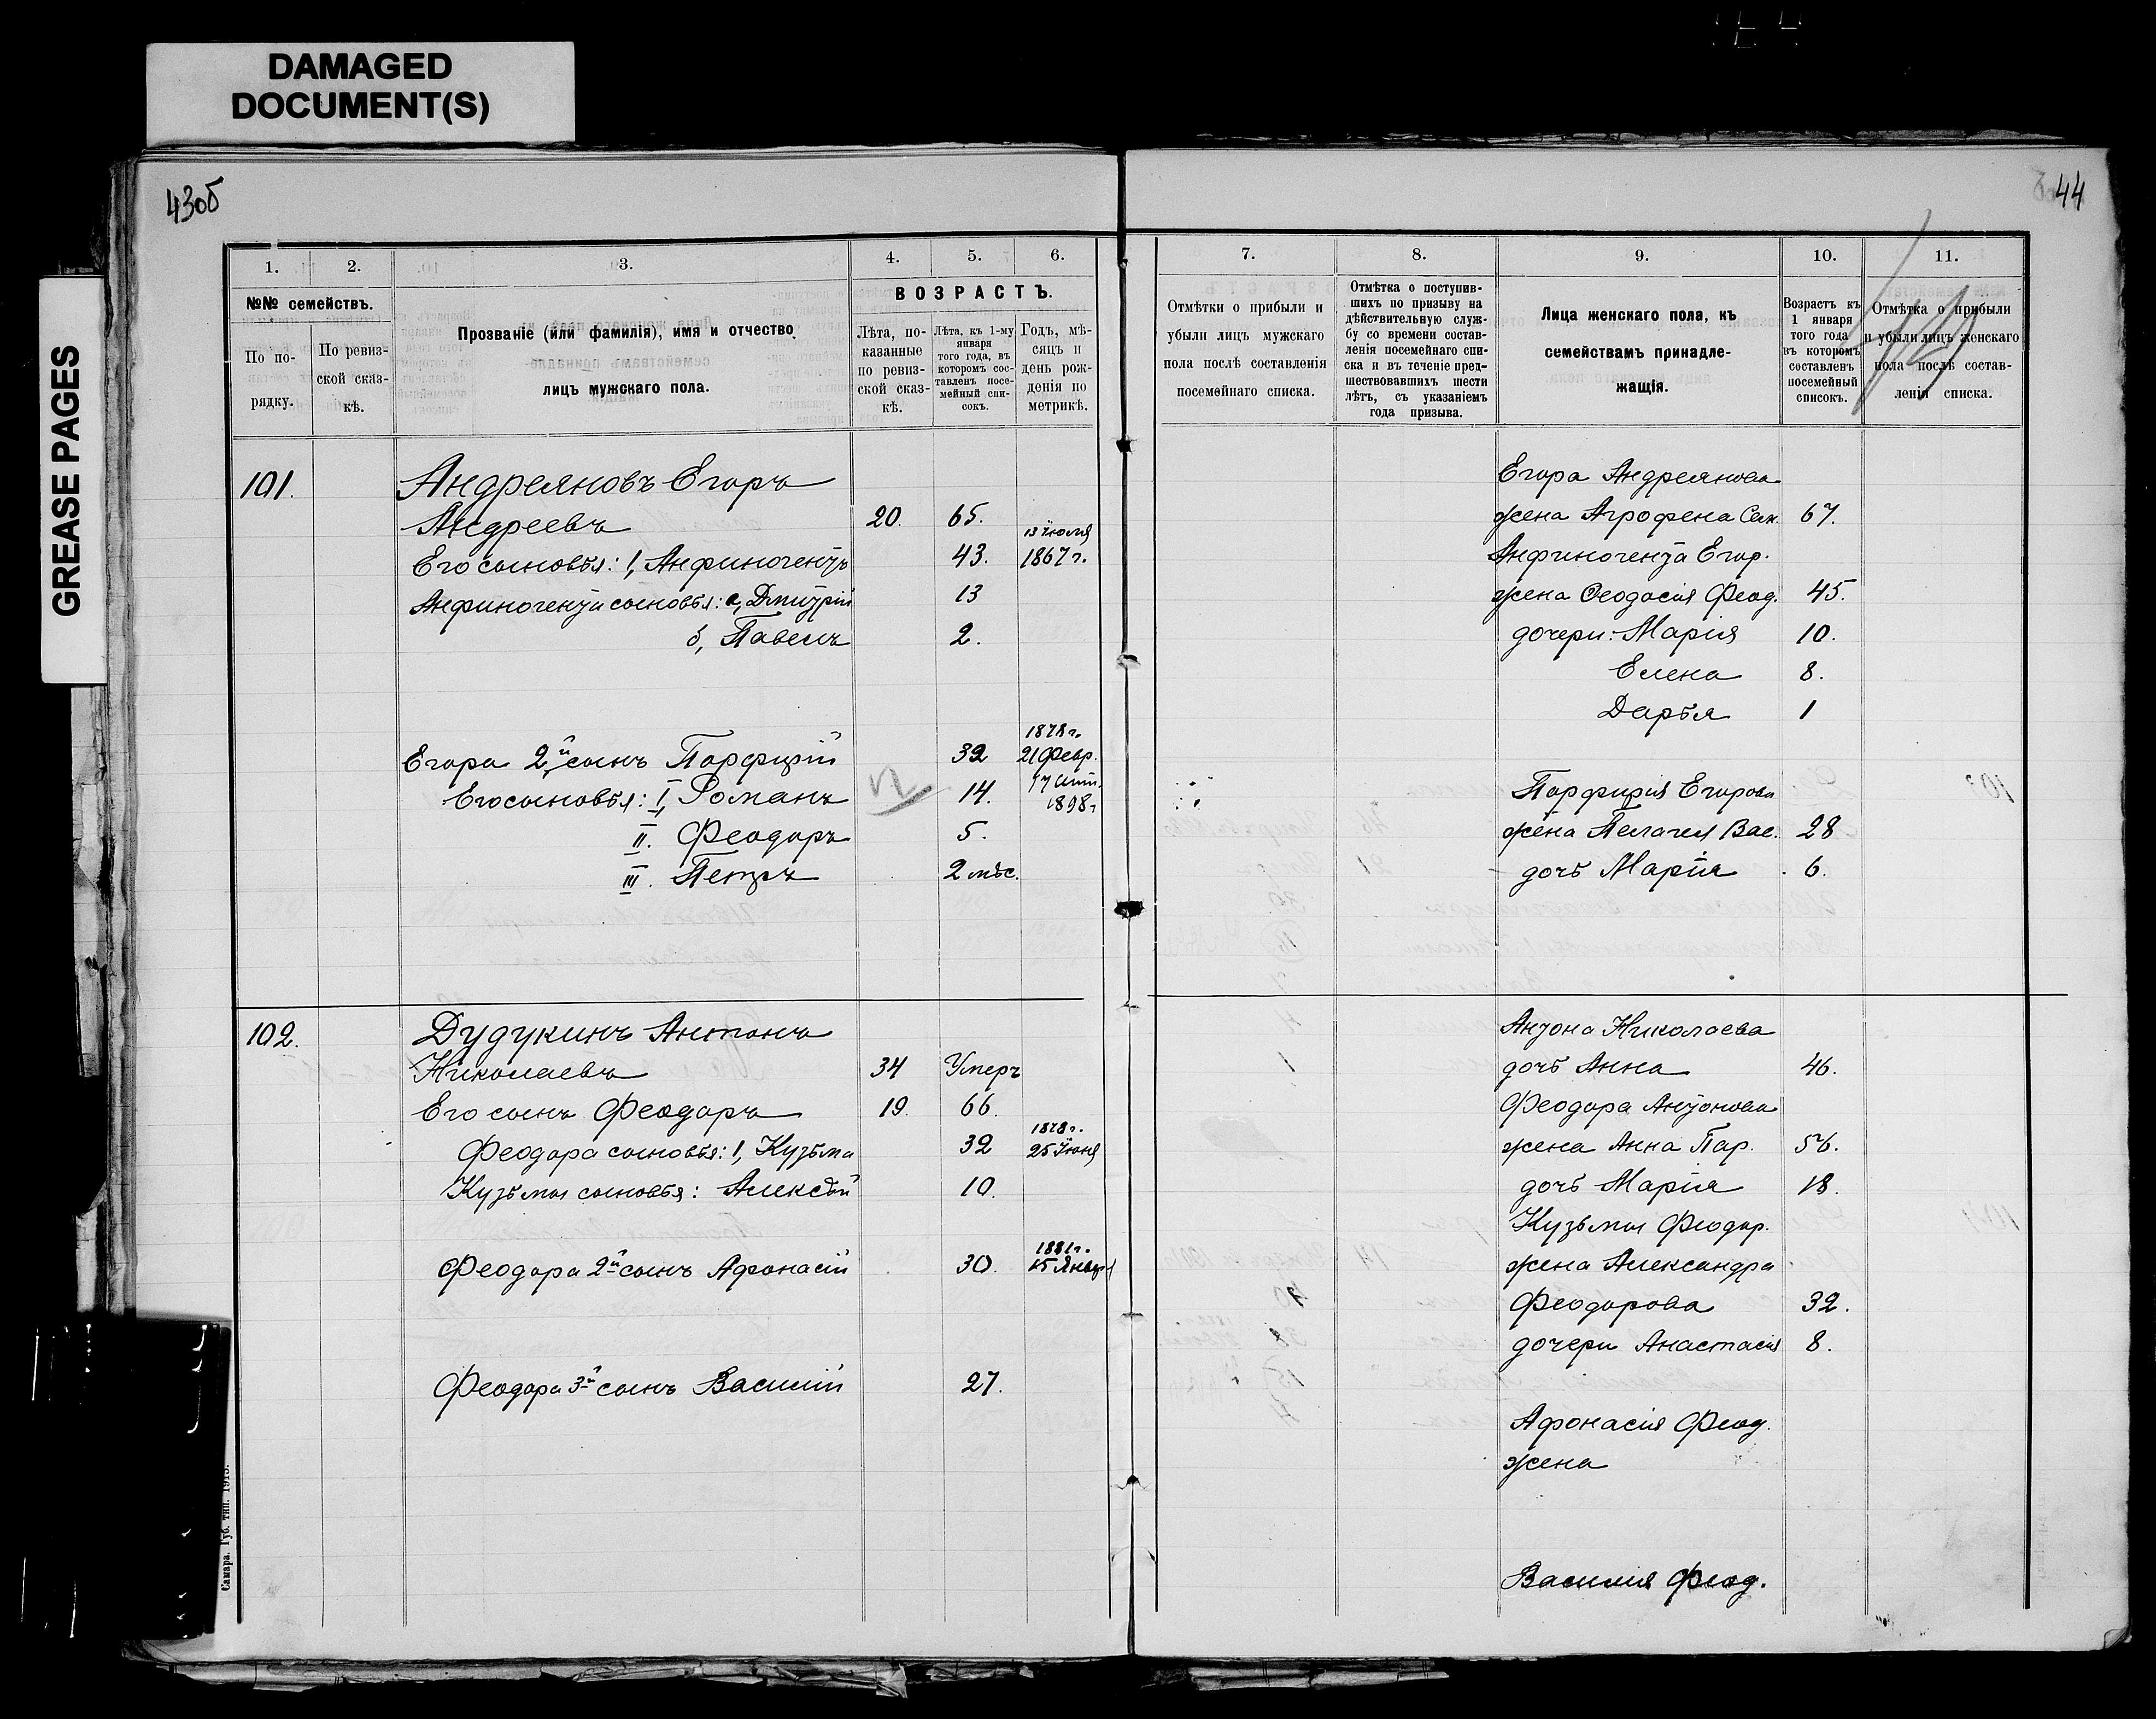 DAMAGED
DOCUMENT(S)
GREASE PAGES
43об
44
1.
2.
3.
4.
5.
6.
№№ семействъ.
По по-
рядку.
По ревиз-
ской сказ-
кѣ.
Прозваніе (или фамилія), имя и отчество
лицъ мужскаго пола.
ВОЗРАСТЪ.
Лѣта, по-
казанные
по ревиз-
ской сказ-
кѣ.
Лѣта, къ 1-му
января
того года, въ
которомъ сос-
тавленъ посе-
мейный спи-
сокъ.
Годъ, мѣ-
сяцъ и
день рож-
денія по
метрикѣ.
101.
Андреяновъ Егоръ
Андреевъ 20. 65.
13 Іюля
Его сыновья: 1, Анфиногентъ 43. 1867 г.
Анфиногента сыновья: а, Дмитрій 13
б, Павелъ 2.
1878 г.
Егора 2й сынъ Порфирій 32 21 Февр.
Его сыновья: I, Романъ 14.
1898 г
II. Феодоръ 5.
III. Петръ 2 мѣс.
102.
Дудукинъ Антонъ
Николаевъ 34 Умеръ
Его сынъ Феодоръ 19. 66.
1878 г.
Феодора сыновья: 1, Кузьма 32 25 Іюня
Кузьмы сыновья: Алексѣй 10.
1881 г.
Феодора 2й сынъ Афонасій 30. 15 Январ
Феодора 3й сынъ Василій 27.
Самара. Губ. тип. 1913.
7.
8.
9.
10.
11.
Отмѣтки о прибыли и
убыли лицъ мужскаго
пола послѣ составленія
посемейнаго списка.
Отмѣтка о поступив-
шихъ по призыву на
дѣйствительную служ-
бу со времени состав-
ленія посемейнаго спи-
ска и въ теченіе пред-
шествовавшихъ шести
лѣтъ, съ указаніемъ
года призыва.
Лица женскаго пола, къ
семействамъ принадле-
жащія.
Возрастъ къ
1 января
того года
въ которомъ
составленъ
посемейный
списокъ.
Отмѣтка о прибыли
и убыли лицъ женскаго
пола послѣ состав-
ленія списка.
Егора Андреянова
жена Агрофена Сем. 67.
Анфиногента Егор.
жена Феодосія Феод. 45.
дочери: Марія 10.
Елена 8.
Дарья 1
Порфирія Егорова
жена Пелагея Вас. 28
дочь Марія 6.
Антона Николаева
дочь Анна 46.
Феодора Антонова
жена Анна Пар. 56.
дочь Марія 18.
Кузьмы Феодор.
жена Александра
Феодорова 32.
дочери Анастасія 8.
Афонасія Феод.
жена
Василія Феод.